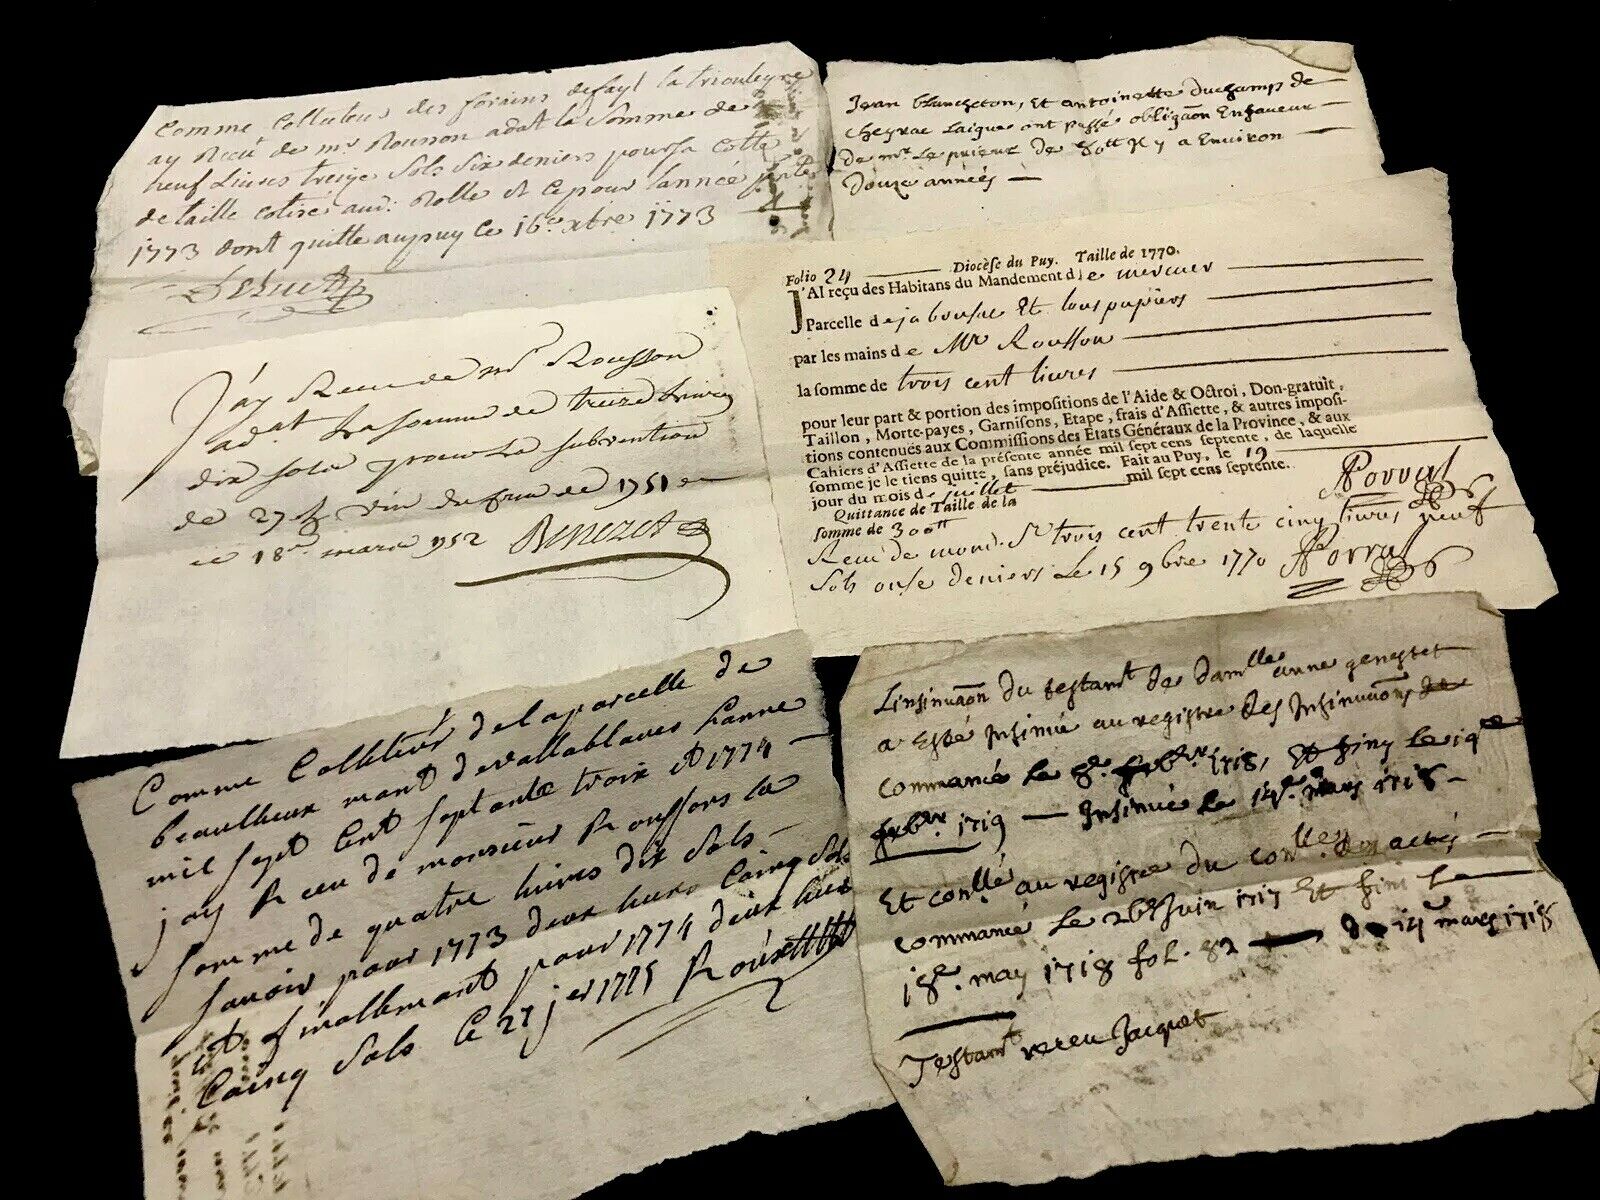 Comme Collecteur des forains defayl la triouleyre
ay Receu de mr Rousson adat la Somme de
neuf Livres treize Sols Six deniers pour sa Cotte
de taille cotisée aud: Rolle et Ce pour lannée pnte
1773 dont quitte aupuy Ce 16e xbre 1773
Jean blancheton, Et antoinette Duchamps de
Cheyrac Laigue ont passé obligãon Enfaveur
de mr Le prieur de 80tt Il y a Environ
Douze années
Folio 24 Diocèse du Puy. Taille de 1770.
J'AI reçu des Habitans du Mandement de mercuer
Parcelle de jabousac Et tous papiers
par les mains de Mr Rousson
la somme de trois cent livres
pour leur part & portion des impositions de l'Aide & Octroi, Don-gratuit,
Taillon, Morte-payes, Garnisons, Etape, frais d'Assiette, & autres imposi-
tions contenues aux Commissions des Etats Généraux de la Province, & aux
Cahiers d'Assiette de la présente année mil sept cens septente, de laquelle
somme je le tiens quitte, sans préjudice. Fait au Puy, le 19
jour du mois de Juillet mil sept cens septente.
Quittance de Taille de la
somme de 300tt
Porral
Receu de mond. Sr trois cent trente cinq livres neuf
Sols onse deniers Le 15 9bre 1770 Porral
J'ay Receu de mr Rousson
adat La somme de treize Livres
dix sols pour La subvention
de 27 vin de 1751
ce 18e mars 1752 Benezet
Comme Colleteur de la parcelle de
beaulheux mant devallablaues Lanne
mil sept Cent septante troix et 1774
jay Receu de monsieur Roussons la
somme de quatre livres dix Sols
savoir pour 1773 deux livres Cainq Sols
et finallemant pour 1774 deux livres
Cainq Sols Ce 27 jer 1775
Linsinuãon Du testamt de Damlle anne genestet
a Esté Insinué au registre des Insinuãons de
commancé Le 8e febvr 1718, Et finy Le 19e
febvr 1719 — Insinué Le 14e mars 1718 —
Et conllé au registre Du conlle des actes —
commancé Le 26e Juin 1717 Et fini Le
18e may 1718 fol. 82 du 14 mars 1718
Testamt receu Jacquet